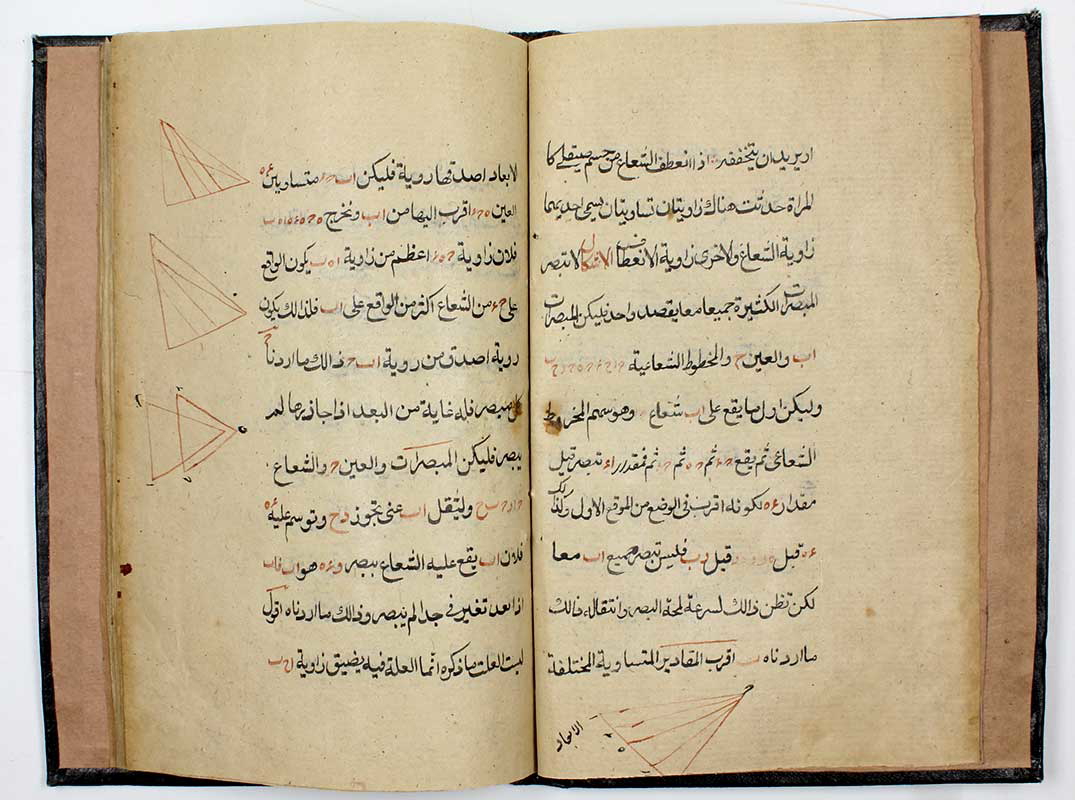 او يريد ان يتخففه اذا انعطف الشعاع من جسم صيقلي كا
لمراة حدثت هناك زاويتان تساويتان يسمى احديهما
زاوية الشعاع والاخرى زاوية الانعطاف الاشكال ا لا تبصر
المبصرات الكثيرة جميعا معا بقصد واحد فليكن المبصرات
اب والعين ح والخطوط الشعاعية
وليكن اول ما يقع على اب شعاع وهو سهم المخروط
الشعاعى ثم يقع ثم ثم فمقدار تبصر قبل
مقدار لكونه اقرب فى الوضع من الموقع الاول وكذلك
قبل قبل دب فليس تبصر جميع اب معا
لكن تظن ذالك لسرعة لمحة البصر وانتقاله ذالك
ما اردناه ب اقرب المقادير المتساوية المختلفة
الابعاد
لابعاد اصدقها روية فليكن اب متساويين
العين اقرب اليها من اب ونخرج
فلان زاوية اعظم من زاوية يكون الواقع
على من الشعاع اكثر من الواقع على اب فلذالك يكون
روية اصدق من روية اب ذالك ما اردنا
كل مبصر فله غاية من البعد اذا جازها لم
يبصر فليكن المبصرات والعين والشعاع
ولينقل اب عنى تجوز دح وتوسم عليه
فلان اب يقع عليه الشعاع يبصر وهو اب فاب
اذا بعد تغير فى جدا لم يبصر وذالك ما اردناه اقول
ليست العلت ما ذكره انما العلة فيه يضيق زاوية